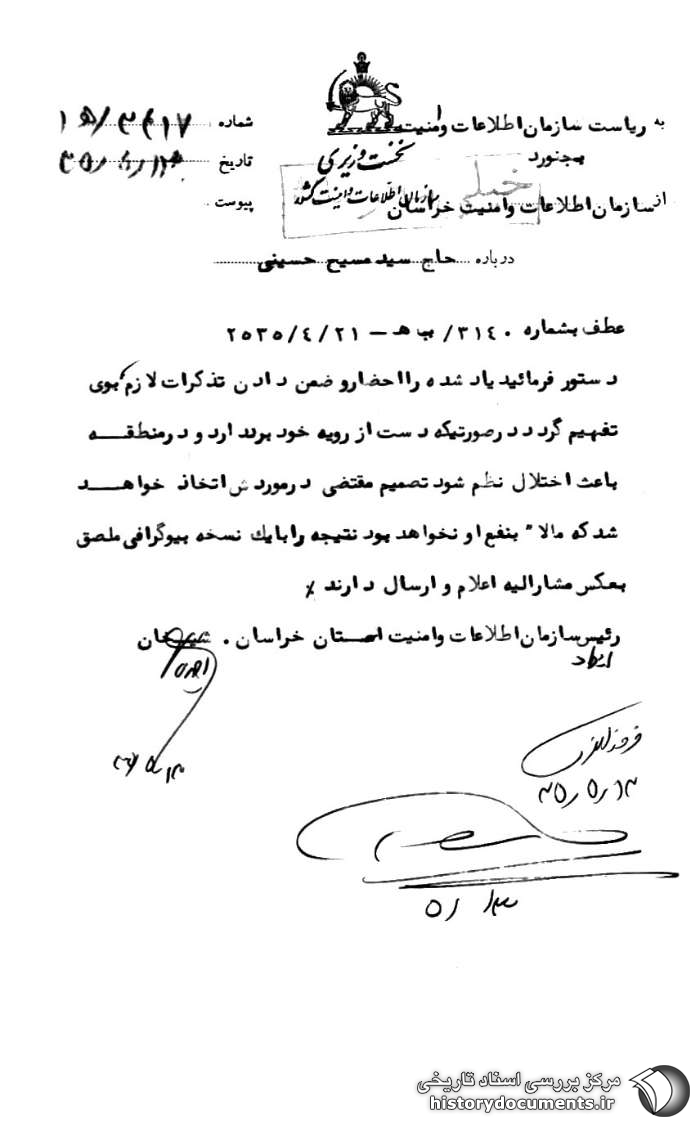 به ریاست سازمان اطلاعات و امنیت
بجنورد
از سازمان اطلاعات و امنیت خراسان
نخست وزیری
سازمان اطلاعات و امنیت کشور
خیلی
شماره
تاریخ
پیوست
درباره حاج سید مسیح حسینی
عطف بشماره ۳۱٤۰/ ب هـ – ۲۵۳۵/٤/۲۱
دستور فرمائید یاد شده را احضار و ضمن دادن تذکرات لازم بوی
تفهیم گردد در صورتیکه دست از رویه خود برندارد و در منطقه
باعث اختلال نظم شود تصمیم مقتضی در موردش اتخاذ خواهد
شد که مالاً بنفع او نخواهد بود نتیجه را با یک نسخه بیوگرافی ملصق
بعکس مشارالیه اعلام و ارسال دارند
رئیس سازمان اطلاعات و امنیت استان خراسان . شیخان
۳۵/۵/۱۳
۵/۱۳
مرکز بررسی اسناد تاریخی
historydocuments.ir